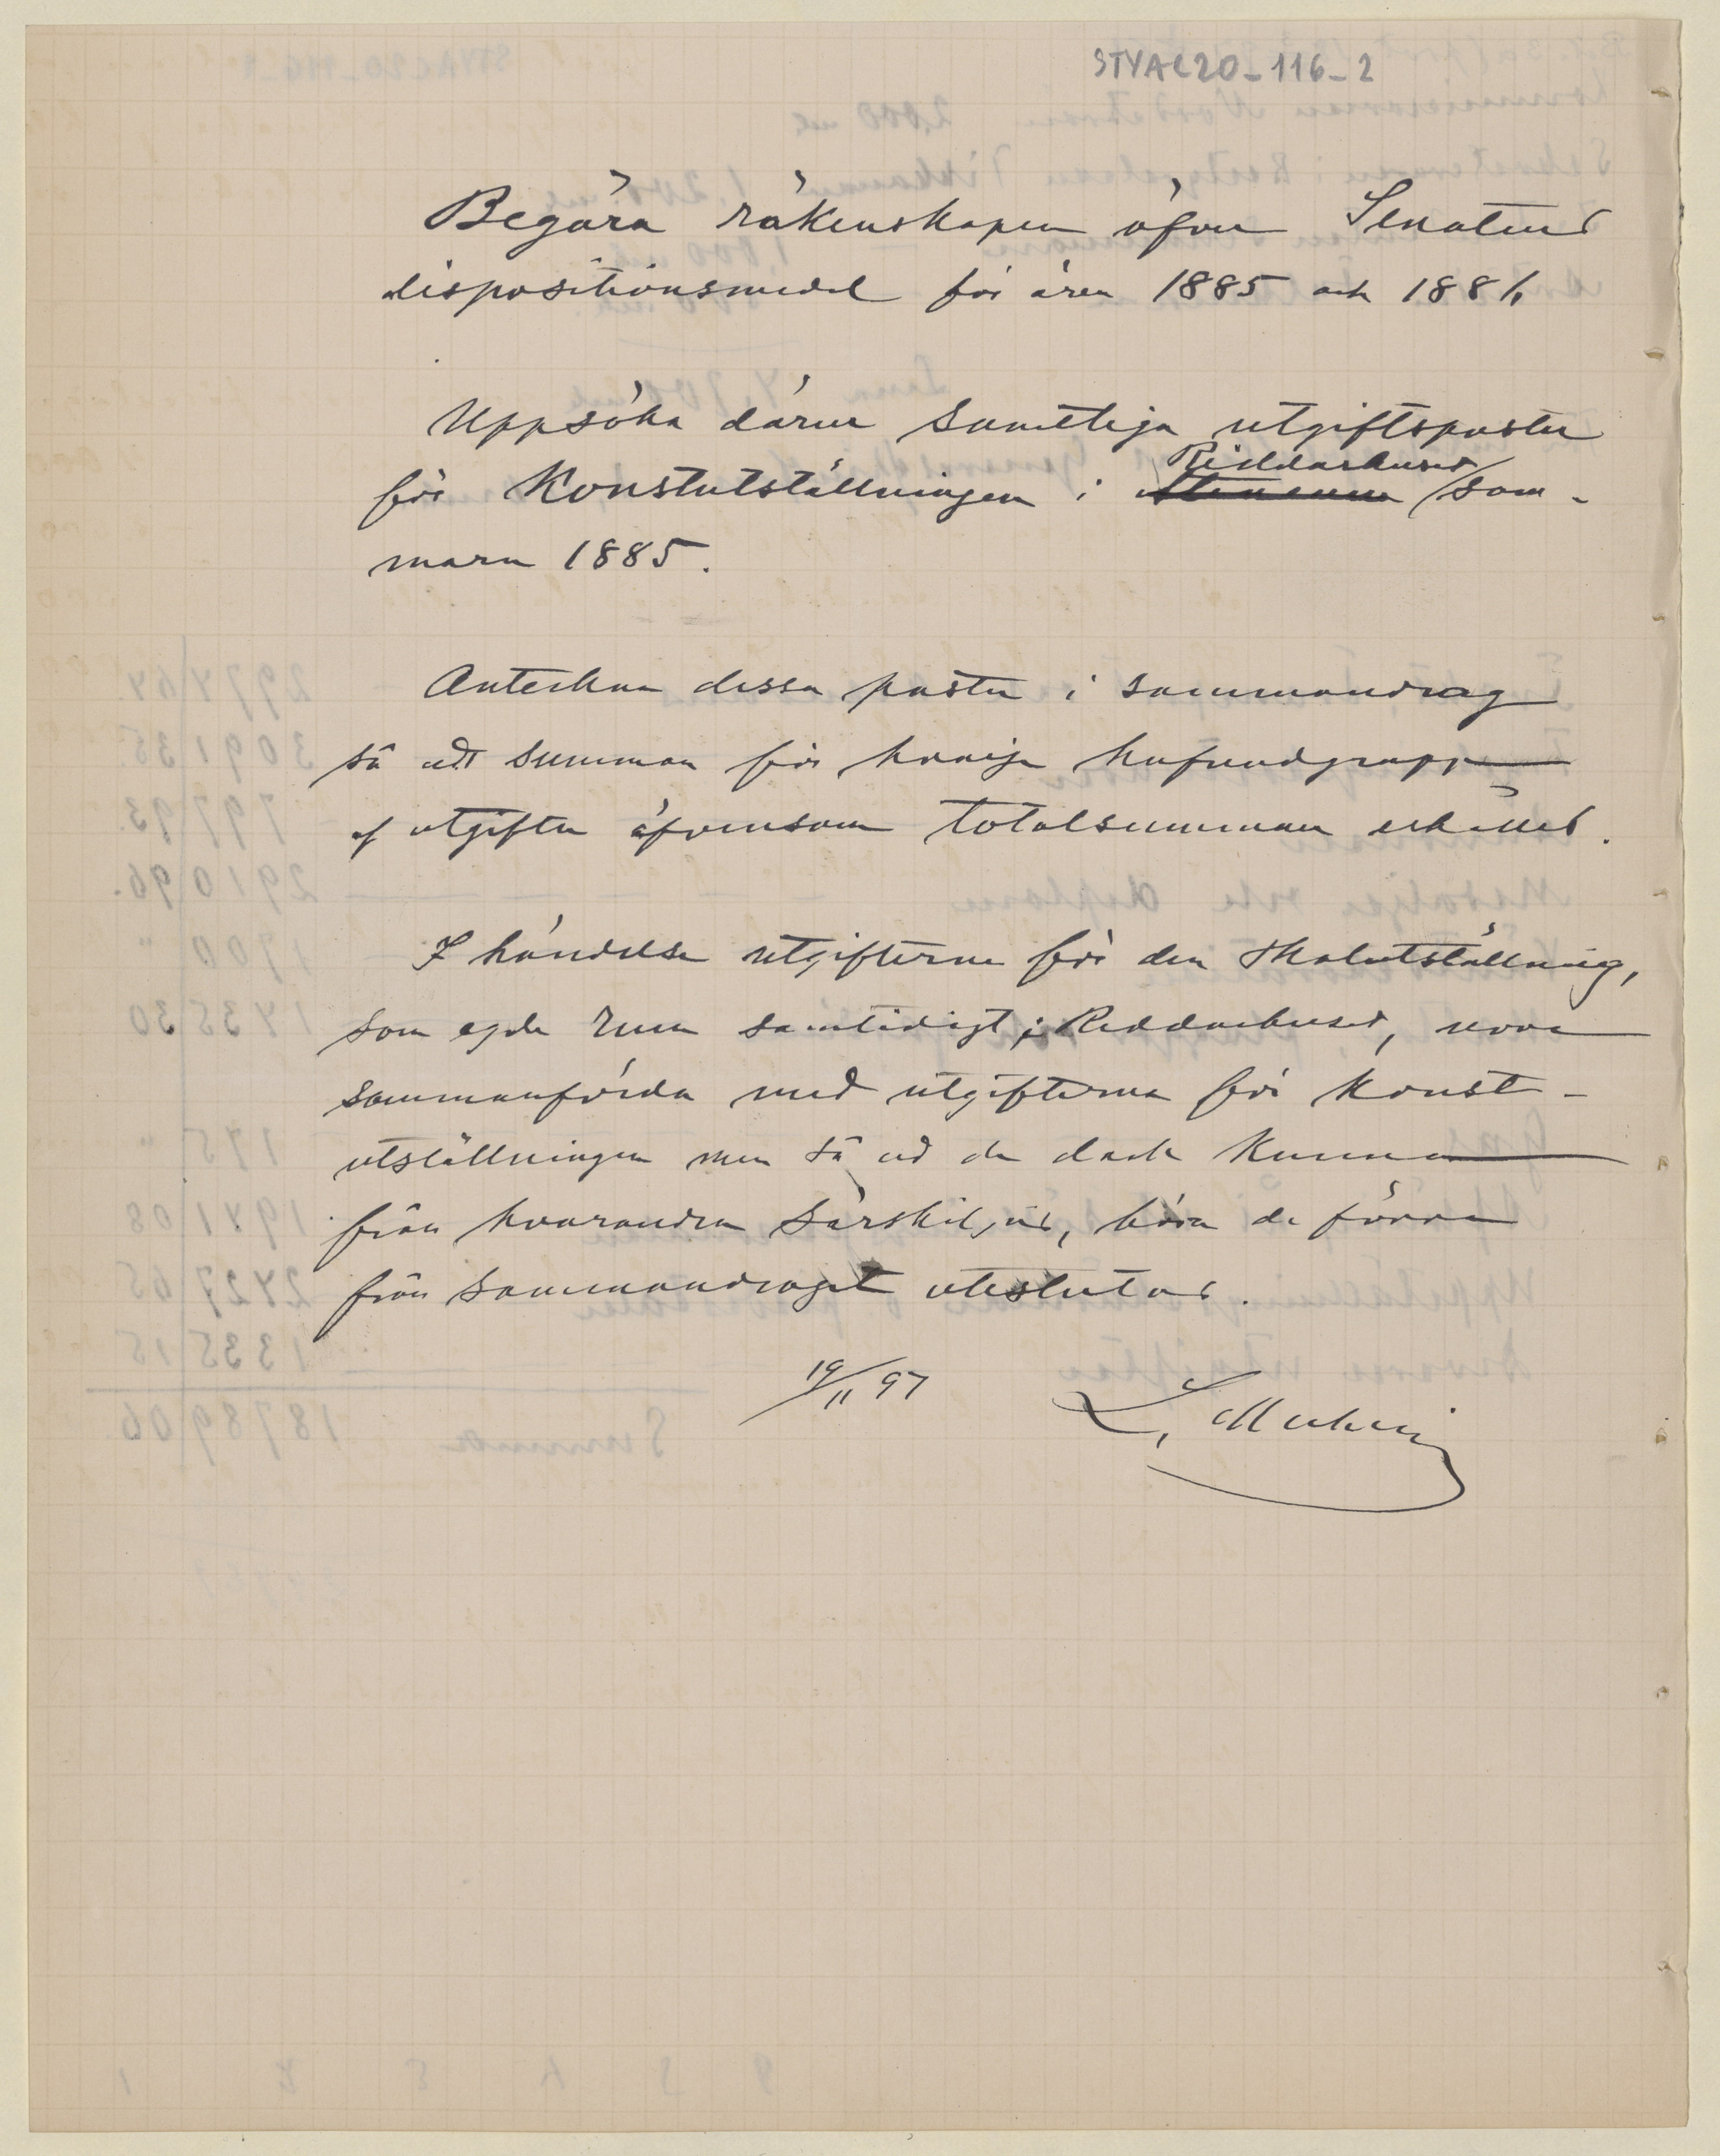 STYAL20_116_2
Begära räkenskapen öfver Senatens
dispositionsmedel för åren 1885 och 1886
Uppsöka därur samtliga utgiftsposter
för Konstutställningen i Riddarhuset som-
maren 1885.
Anteckna dessa poster i sammandrag
så att summan för hvarje hufvudgrupp
af utgifter äfvensom totalsumman erhålles.
I händelse utgifterna för den skolutställning,
som egde rum samtidigt i Riddarhuset, vore
sammanförda med utgifterna för Konst-
utställningen men så att de dock kunna
från hvarandra särskiljas, böra de förra
från sammandraget uteslutas.
19/11 97 L. Mechelin